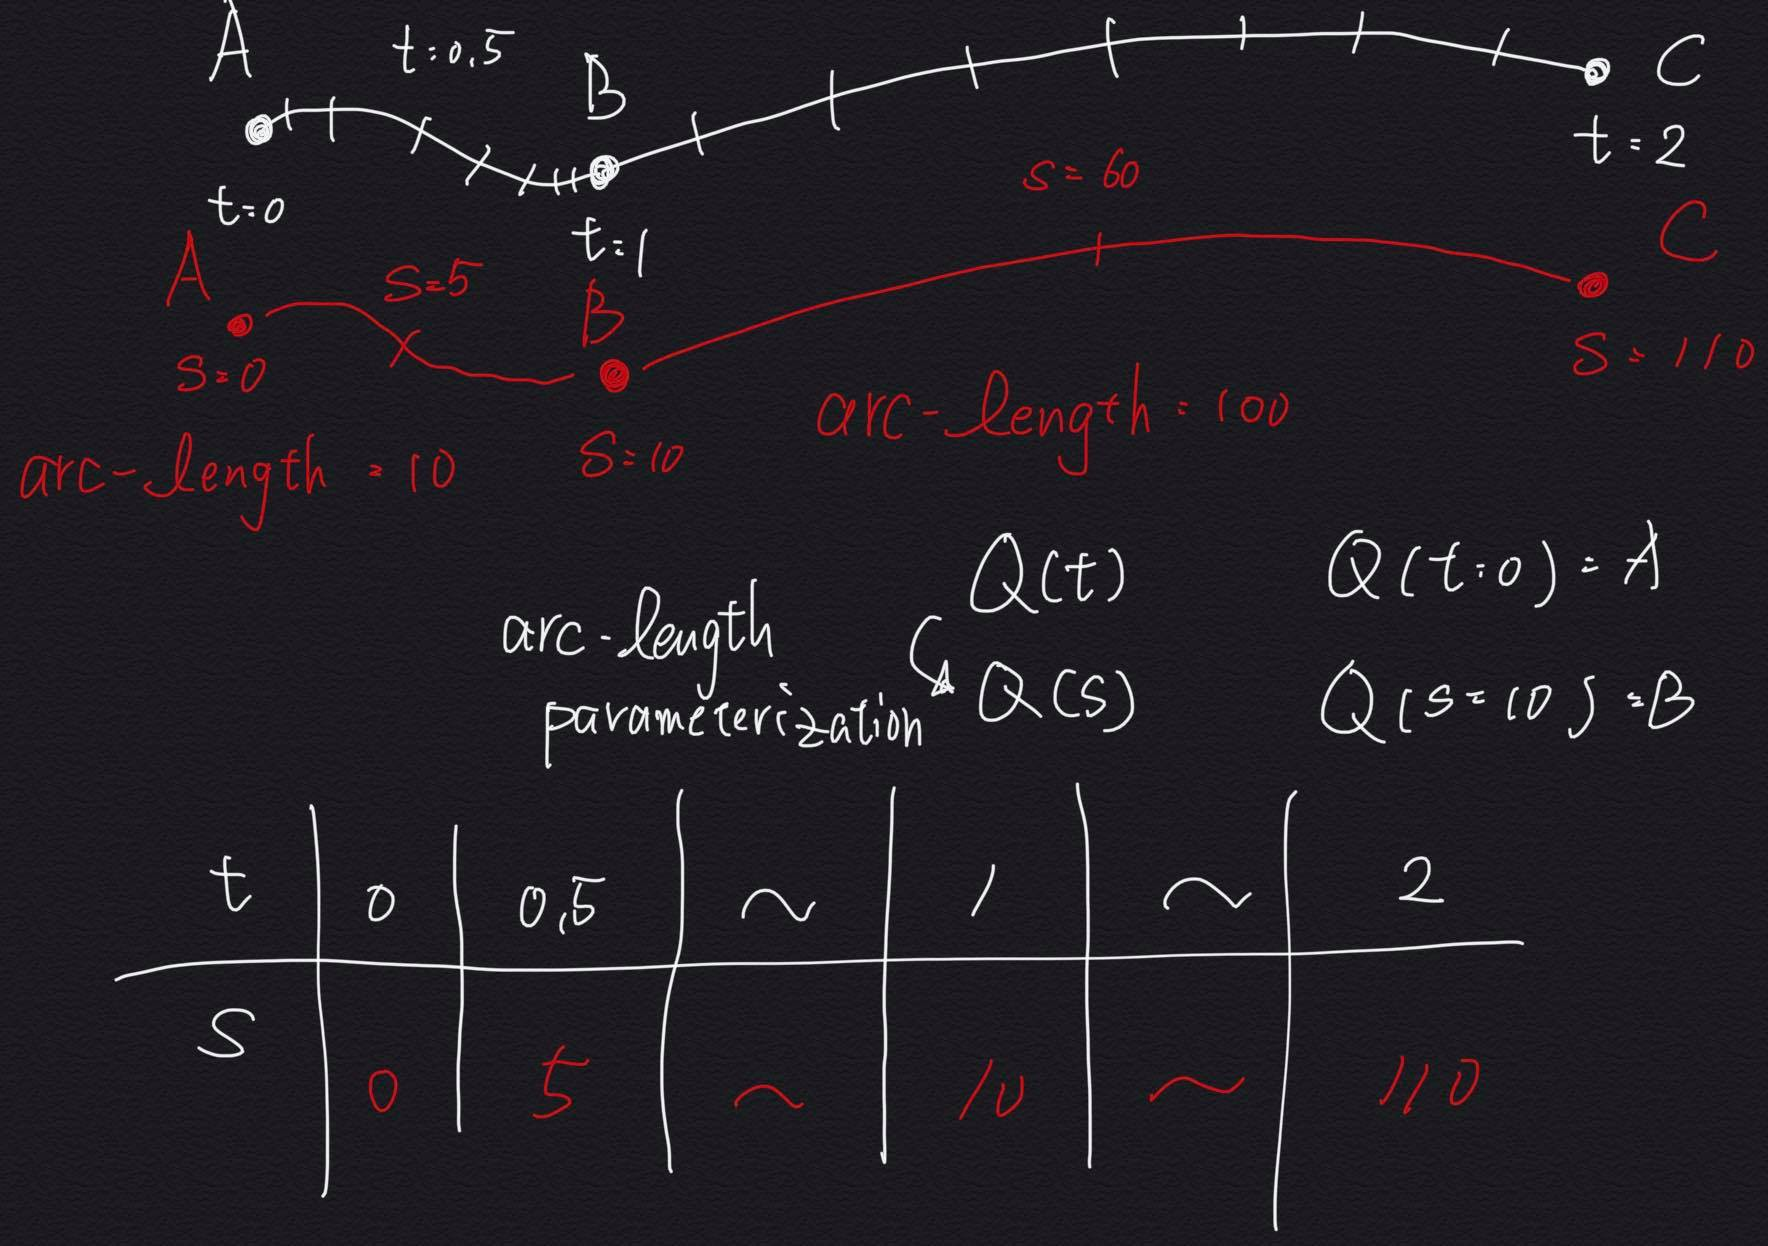 A
t=0,5
B
C
t=0
t=1
t=2
s=60
A
S=5
B
C
S=0
S=10
S=110
arc-length=10
arc-length=100
Q(t)
Q(t=0)=A
arc-length
parameterization
Q(S)
Q(s=10)=B
t 0 0,5 ~ 1 ~ 2
S 0 5 ~ 10 ~ 110